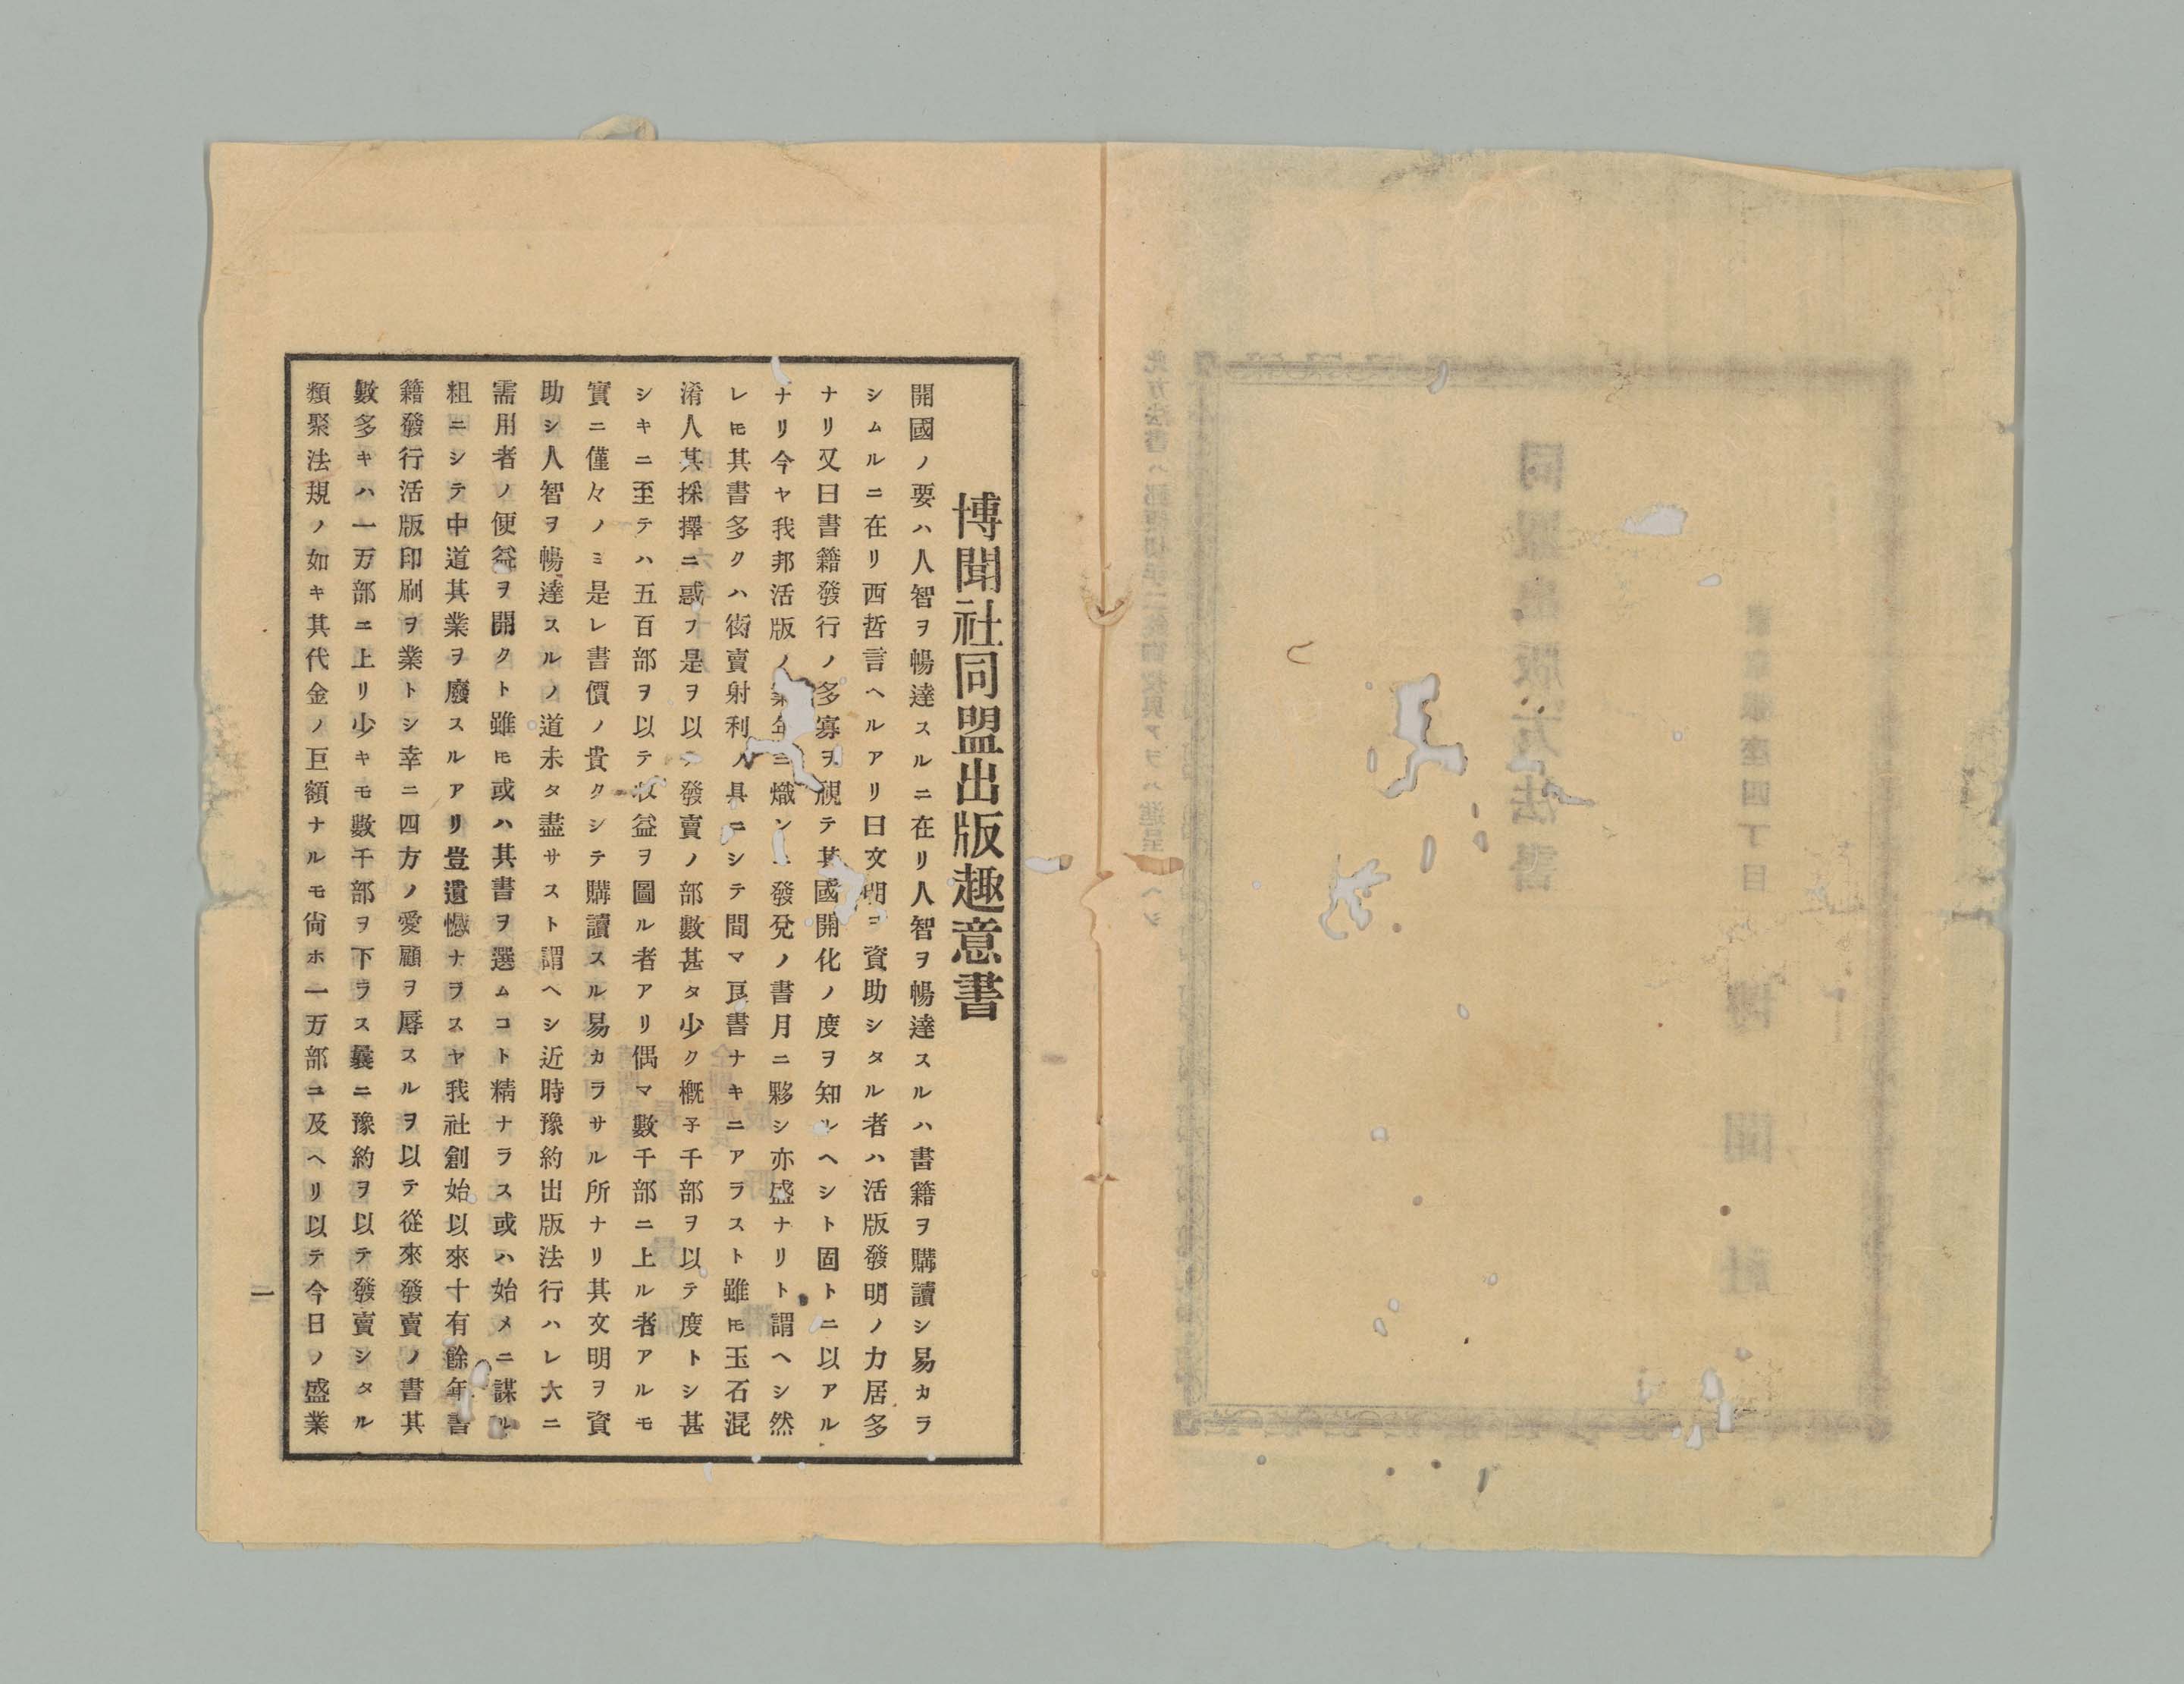 博聞社同盟出版趣意書
開國ノ要ハ人智ヲ暢達スルニ在リ人智ヲ暢達スルハ書籍ヲ購讀シ易カラ
シムルニ在リ西哲言ヘルアリ曰文明ヲ資助シタル者ハ活版發明ノ力居多
ナリ又曰書籍發行ノ多寡ヲ視テ其國開化ノ度ヲ知ルヘシト固トニ以アル
ナリ今ヤ我邦活版ノ業年ニ熾ンニ發兌ノ書月ニ夥シ亦盛ナリト謂ヘシ然
レ𪜈其書多クハ衒賣射利ノ具ニシテ間マ良書ナキニアラスト雖𪜈玉石混
淆人其採擇ニ惑フ是ヲ以テ發賣ノ部數甚タ少ク概子千部ヲ以テ度トシ甚
シキニ至テハ五百部ヲ以テ收益ヲ圖ル者アリ偶マ數千部ニ上ル者アルモ
實ニ僅々ノミ是レ書價ノ貴クシテ購讀スル易カラサル所ナリ其文明ヲ資
助シ人智ヲ暢達スルノ道未タ盡サスト謂ヘシ近時豫約出版法行ハレ大ニ
需用者ノ便益ヲ開クト雖𪜈或ハ其書ヲ選ムコト精ナラス或ハ始メニ謀ル
粗ニシテ中道其業ヲ廢スルアリ豈遺憾ナラスヤ我社創始以來十有餘年書
籍發行活版印刷ヲ業トシ幸ニ四方ノ愛顧ヲ辱スルヲ以テ從來發賣ノ書其
數多キハ一万部ニ上リ少キモ數千部ヲ下ラス曩ニ豫約ヲ以テ發賣シタル
類聚法規ノ如キ其代金ノ巨額ナルモ尙ホ一万部ニ及ヘリ以テ今日ノ盛業
一